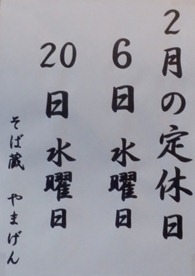 2月の定休日
6日 水曜日
20日 水曜日
そば蔵 やまげん